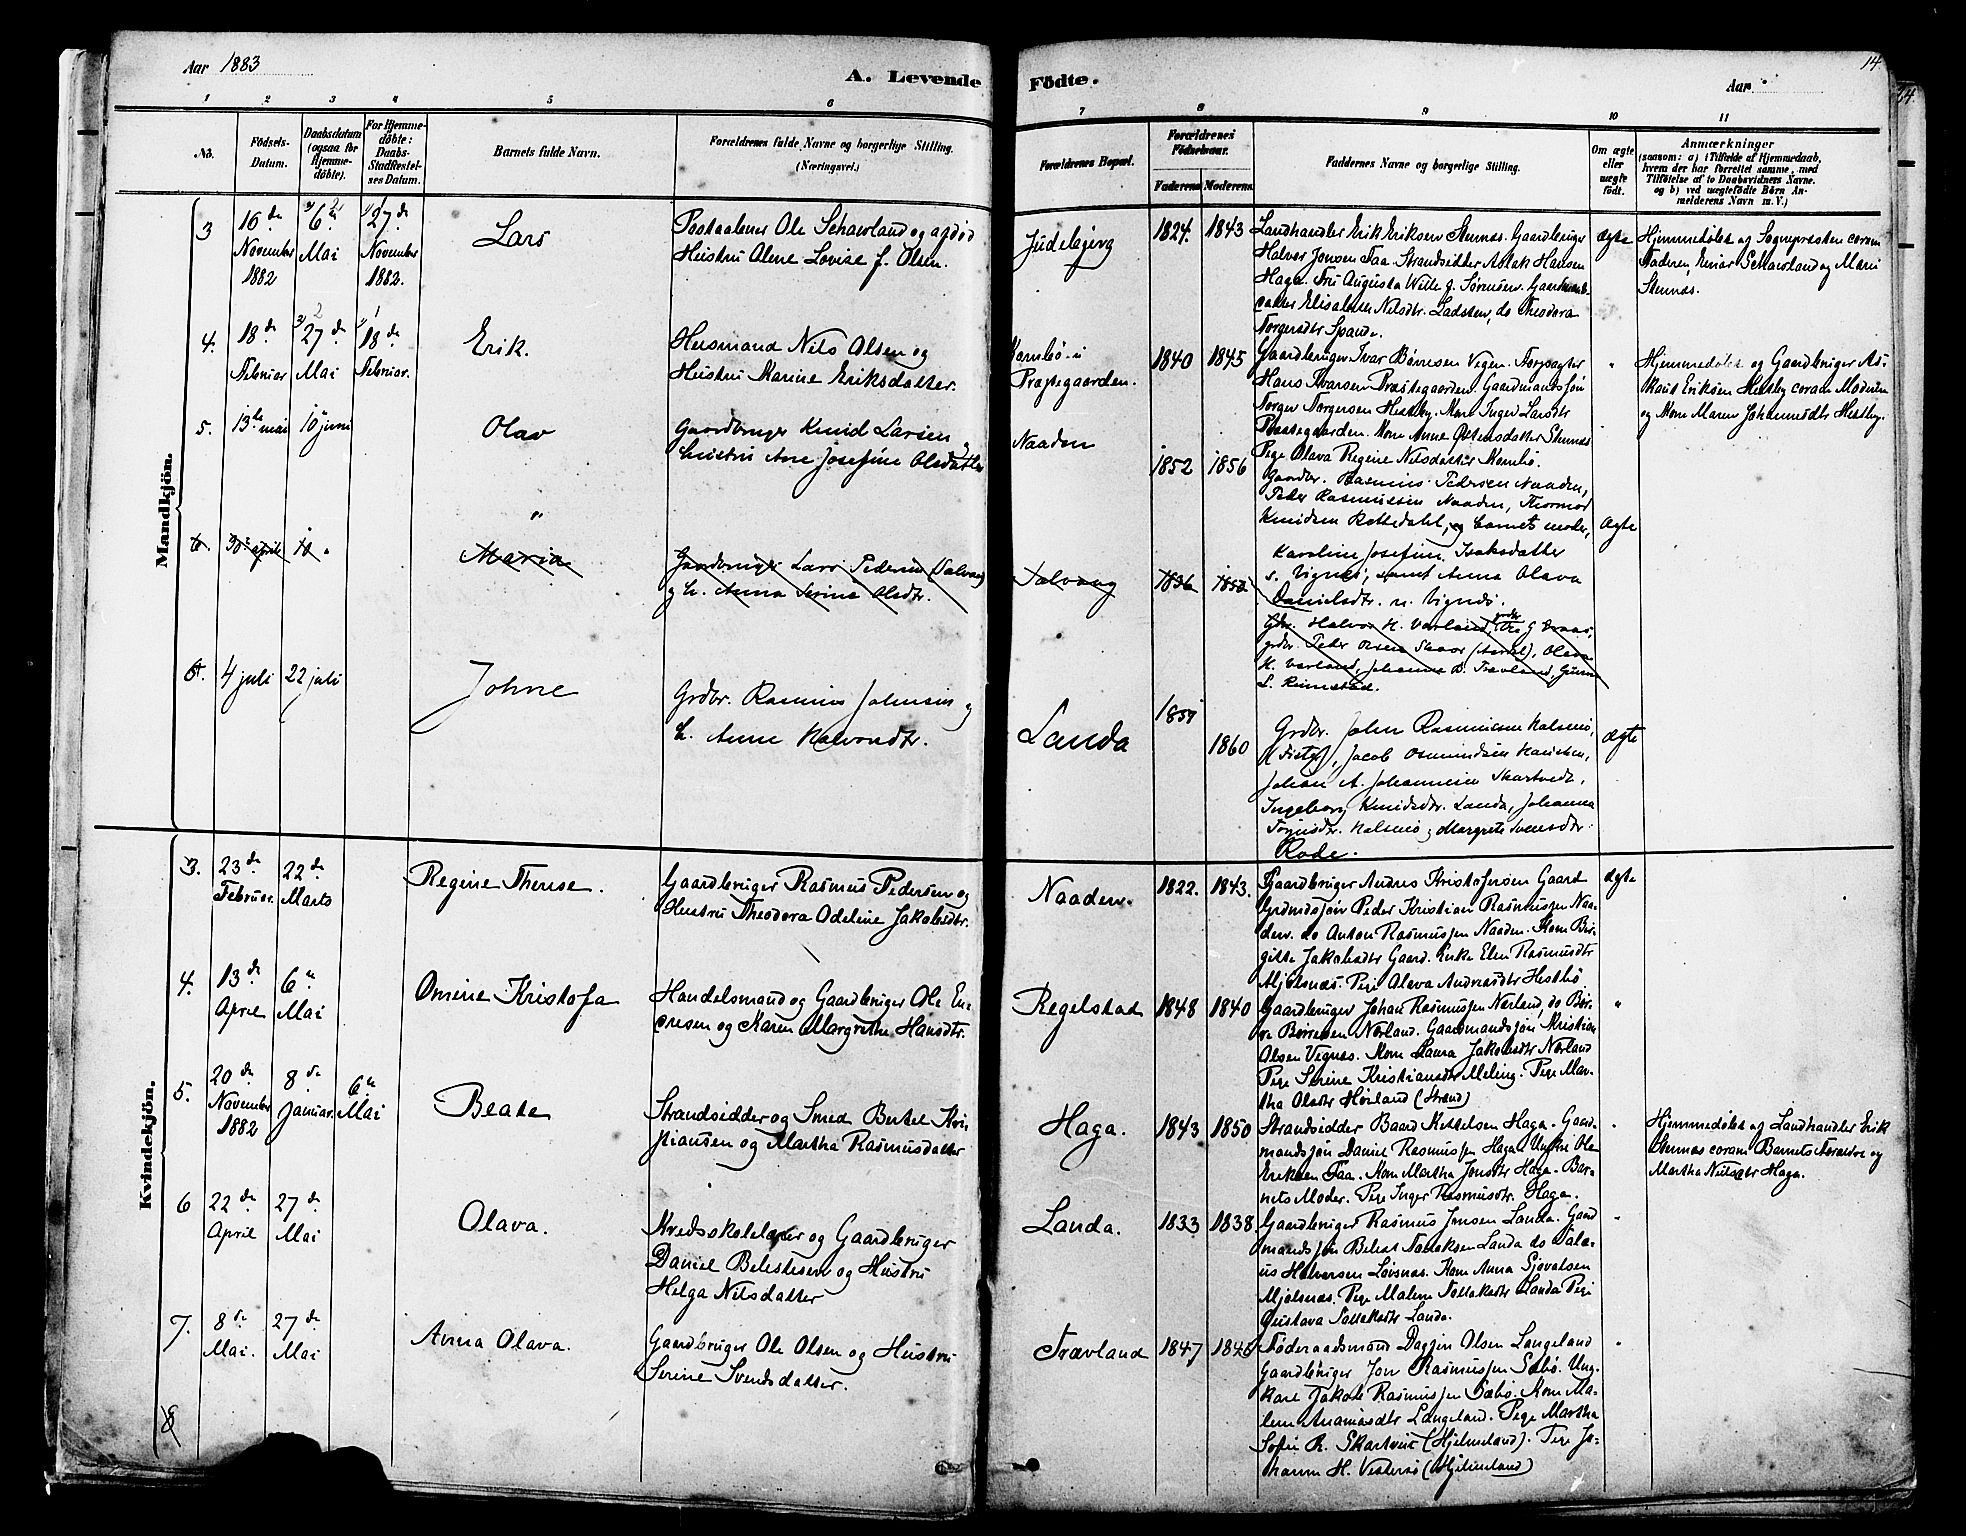 Aar 1883
A. Levende Födte.
Aar
14
14.
1 2 3 4 5 6 7 8 9 10 11
No.
Födsels-
Datum.
Daabsdatum
(ogsaa for
Hjemme-
döbte).
For Hjemme-
döbte:
Daabs-
Stadfæstel-
ses Datum.
Barnets fulde Navn.
Forældrenes fulde Navne og borgerlige Stilling.
(Næringsvei.)
Forældrenes Bopæl.
Forældrenes
Födselsaar.
Faderens Moderens
Faddernes Navne og borgerlige Stilling.
Om ægte
eller
uægte
födt.
Anmærkninger
(saasom: a) i Tilfælde af Hjemmedaab,
hvem der har forrettet samme, med
Tilföielse af to Daabsvidners Navne,
og b) ved uægtefödte Börn An-
melderens Navn m. V.)
Mandkjön.
3
16 de
November
1882
6 te
Mai
27 de
November
1882.
Lars
Hustru Olene Lovise f. Olsen.
1824. 1843
Landhandler Erik Eriksen Stennæs. Gaardbruger
Halvor Jonsen Faa. Strandsidder Aslak Hansen
Haga. Fru Augusta Wille f. Sørensen.
Elisabeth Nilsdtr. Ladsten, do Theodora
Torgersdtr Spande.
ægte
Hjemmedøbt af Sognepræsten coram
Faderen, Einar Schavland og Marie
Stennæs.
4.
18 de
Februar
27 de
Mai
18 de
Februar.
Erik.
Husmand Nils Olsen og
Hustru Karine Eriksdatter.
Kornbø i
Præstegaarden.
1840 1845
Gaardbruger Ivar Børresen Vegen. Forpagter
Hans Ivarsen Præstegaarden. Gaardmandssøn
Torger Torgersen Hestby. Kone Inger Larsdtr
Præstegaarden. Kone Anne Stennæs
Pige Olava Regine Nilsdatter Kornbø.
"
Hjemmedøbt af Gaardbruger As-
Eriksen Hestby coram Moderen
og Kone Maren Johannesdtr Hestby.
5.
13de mai
10 juni
Olav
Gaardbruger Knud Larsen og
hustru Ane Josefine Olsdatter
Naaden
1852 1856
Gaardbr. Rasmus Pedersen Naaden,
Peder Rasmussen Naaden, Thormod
Knudsen Bottedahl, og barnets moder,
Karoline Josefine Isaksdatter
s. Vignæs, samt Anna Olava
Danielsdtr. n. Vignæs.
Ægte
6.
30 april
10 "
"
Maria
Gaardbruger Lars Pedersen (Talvang)
og h. Anna Serine Olsdtr.
Talvang
1836 1852
Gbr. Halvor H. Varland,
grdbr. Peder Olsen (Aardal), Olava
H. Varland, Johanne D. Travland,
L. Rimestad.
6.
4 juli
22 juli
Johne
Grdbr. Rasmus Johnsen og
h. Anne Halvorsdtr.
Landa
1860
Grdbr. John Rasmussen Halsenø,
(Fister), Jacob Osmundsen
Johan A. Johannesen Skartvedt,
Ingeborg Knudsdtr. Landa, Johanna
Halsenø og Margrete Svensdtr.
Rode.
Ægte
Kvindekjön.
3.
23 de
Februar.
22 de
Marts
Regine Therese.
Gaardbruger Rasmus Pedersen og
Hustru Theodora Odeline Jakobsdtr.
Naaden.
1822. 1843.
Gaardbruger Andres Kristofersen Gaard
Grdmdssøn Peder Kristian Rasmussen Naa-
den. do Anton Rasmussen Naaden. Kone Bir-
gitte Jakobsdtr Gaard. Enke Elen Rasmusdtr
Mjølsnæs. Pige Olava Andreasdtr Hestbø
ægte
4.
13 de
April
6 te
Mai
Omine Kristofa
Handelsmand og Gaardbruger Ole En-
dresen og Karen Margrethe Hansdtr.
Regelstad
1848 1840
Gaardbruger Johan Rasmussen Nørland, do Bør-
re Børresen Nørland. Gaardmandssøn Kristian
Olsen Vignæs. Kone Laura Jakobsdtr Nørland
Pige Serine Kristiansdtr Meling. Pige Mar-
tha Olsdtr Høiland (Strand)
"
5.
20 de
November
1882
8 de
Januar.
6 te
Mai
Beate
Strandsidder og Smed Bertel Kri-
stiansen og Martha Rasmusdatter
Haga.
1843 1850
Strandsidder Baard Kettelsen Haga. Gaard-
mandssøn Daniel Rasmussen Haga. Ungkar Ole
Eriksen Faa. Kone Martha Jonsdtr Haga. Bar-
nets Moder. Pige Inger Rasmusdtr. Haga.
"
Hjemmedøbt af Landhandler Erik
Stennæs coram Barnets Forældre og
Martha Nilsdtr Haga.
6
22 de
April
27 de
Mai
Olava.
Kredsskolelærer og Gaardbruger
Daniel Belestesen og Hustru
Helga Nilsdatter
Landa.
1833 1838
Gaardbruger Rasmus Jonsen Landa. Gaard
mandssøn Belest Tollaksen Landa do Vale-
us Halversen Løvsnæs. Kone Anna Sjovatsen
Mjølsnæs. Pige Malene Tollaksdtr Landa Pige
Gustava Tollaksdtr Landa.
"
7.
8 de
Mai.
27 de
Mai
Anna Olava.
Gaardbruger Ole Olsen og Hustru
Serine Svendsdatter.
Trævland
1847 1846
Føderaadsmand Daggin Olsen Langeland
Gaardbruger Jon Rasmussen Sæbø. Ung-
karl Jakob Rasmussen Sæbø. Kone Ma-
lene Ananiasdtr Langeland. Pige Martha
Sofie R. Skartveit (Hjelmeland). Pige Jo-
hanne H. Vestersø (Hjelmeland)
"
8